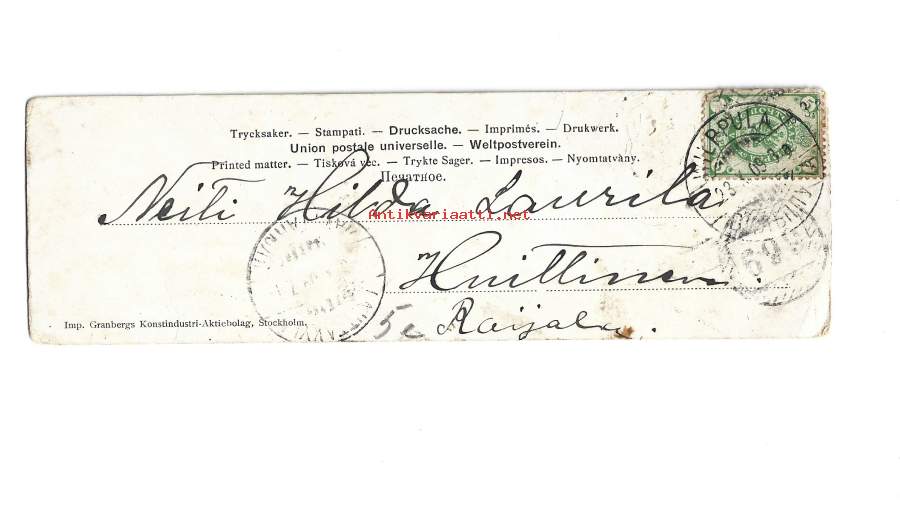 Trycksaker. — Stampati. — Drucksache. — Imprimés. — Drukwerk.
Union postale universelle. — Weltpostverein.
Printed matter. — Tisková věc. — Trykte Sager. — Impresos. — Nyomtatvàny.
Печатное.
Neiti Hilda Laurila
Antikvariaatti.net
Huittinen
Raijala.
5
Imp. Granbergs Konstindustri-Aktiebolag, Stockholm.